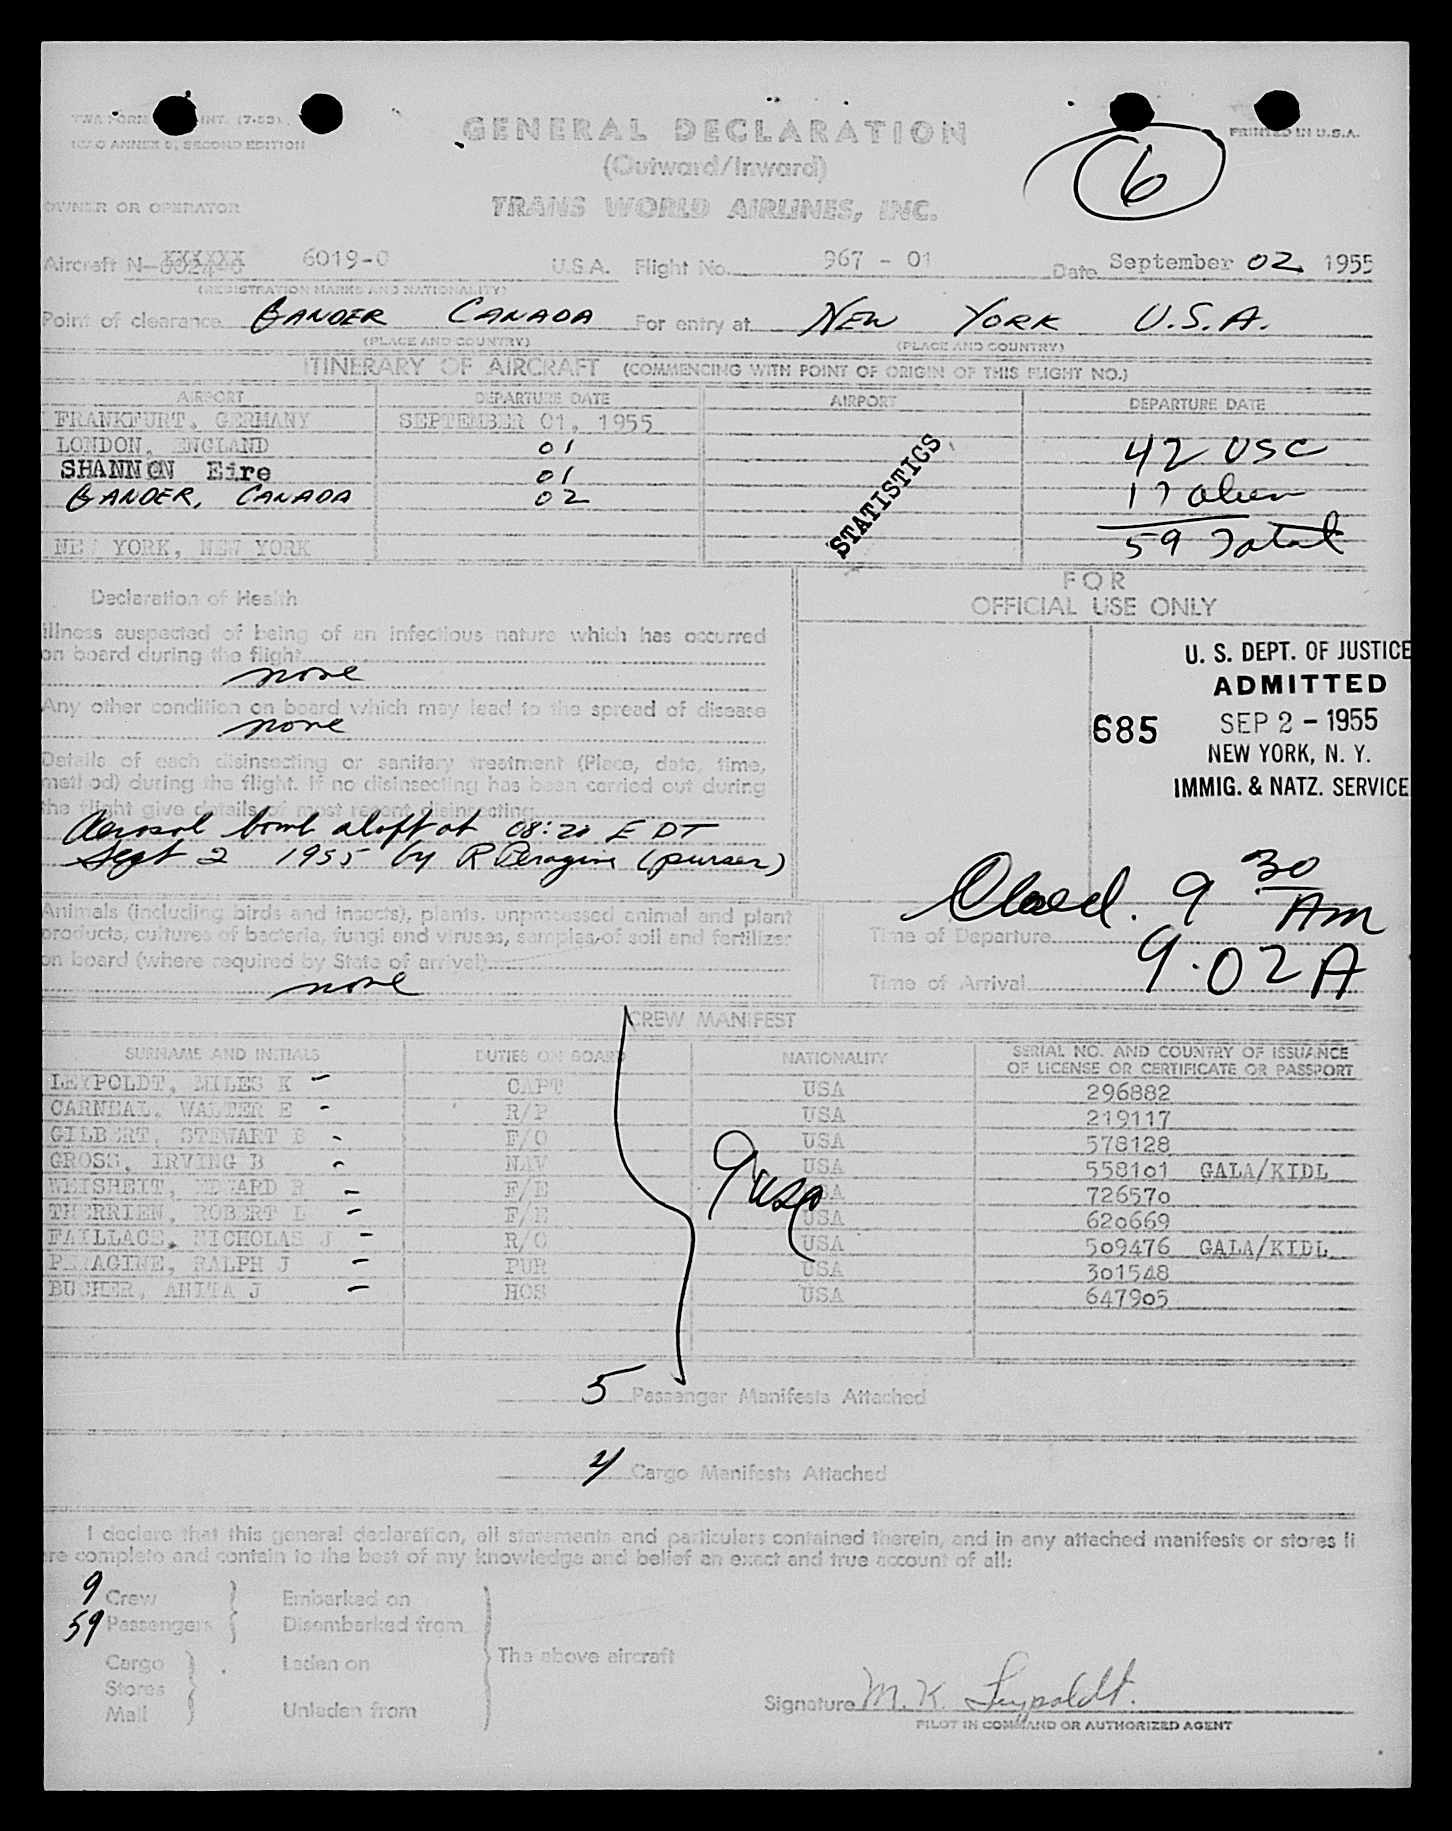 TWA FORM INT. (7-53)
ICAO ANNEX 9, SECOND EDITION
PRINTED IN U.S.A.
GENERAL DECLARATION
(Outward/Inward)
6
OWNER OR OPERATOR
TRANS WORLD AIRLINES, INC.
Aircraft N- 6019-C U.S.A. Flight No. 967 - 01 Date September 02 1955
(REGISTRATION MARKS AND NATIONALITY)
Point of clearance GANDER CANADA For entry at NEW YORK U.S.A.
(PLACE AND COUNTRY) (PLACE AND COUNTRY)
ITINERARY OF AIRCRAFT (COMMENCING WITH POINT OF ORIGIN OF THIS FLIGHT NO.)
AIRPORT DEPARTURE DATE AIRPORT DEPARTURE DATE
FRANKFURT, GERMANY SEPTEMBER 01, 1955
LONDON, ENGLAND 01 42 USC
SHANNON Eire 01
GANDER, CANADA 02 17 alien
STATISTICS
NEW YORK, NEW YORK 59 Total
Declaration of Health
FOR
OFFICIAL USE ONLY
Illness suspected of being of an infectious nature which has occurred
on board during the flight
none
Any other condition on board which may lead to the spread of disease
none
U. S. DEPT. OF JUSTICE
ADMITTED
685 SEP 2 - 1955
NEW YORK, N. Y.
IMMIG. & NATZ. SERVICE
Details of each disinsecting or sanitary treatment (Place, date, time,
method) during the flight. If no disinsecting has been carried out during
the flight give details of most recent disinsecting
Aerosol bomb aloft at 08:20 EDT
Sept 2 1955 by R Peragine (purser)
Animals (including birds and insects), plants, unprocessed animal and plant
products, cultures of bacteria, fungi and viruses, samples of soil and fertilizer
on board (where required by State of arrival)
none
Closed. 9 30 AM
Time of Departure
Time of Arrival 9.02 A
CREW MANIFEST
SURNAME AND INITIALS DUTIES ON BOARD NATIONALITY SERIAL NO. AND COUNTRY OF ISSUANCE
OF LICENSE OR CERTIFICATE OR PASSPORT
LEYPOLDT, MILES K - CAPT USA 296882
CARNEAL, WALTER E - R/P USA 219117
GILBERT, STEWART B - F/O USA 578128
GROSS, IRVING B - NAV USA 558101 GALA/KIDL
WEISHEIT, EDWARD R - F/E USA 726570
THERRIEN, ROBERT L - F/E USA 620669
FAILLACE, NICHOLAS J - R/O USA 509476 GALA/KIDL
PERAGINE, RALPH J - PUR USA 301548
BUCHER, ANITA J - HOS USA 647905
9 usa
5 Passenger Manifests Attached
4 Cargo Manifests Attached
I declare that this general declaration, all statements and particulars contained therein, and in any attached manifests or stores li
re complete and contain to the best of my knowledge and belief an exact and true account of all:
9 Crew Embarked on
59 Passengers Disembarked from
The above aircraft
Cargo Laden on
Stores
Mail Unladen from
Signature M. K. Leypoldt.
PILOT IN COMMAND OR AUTHORIZED AGENT